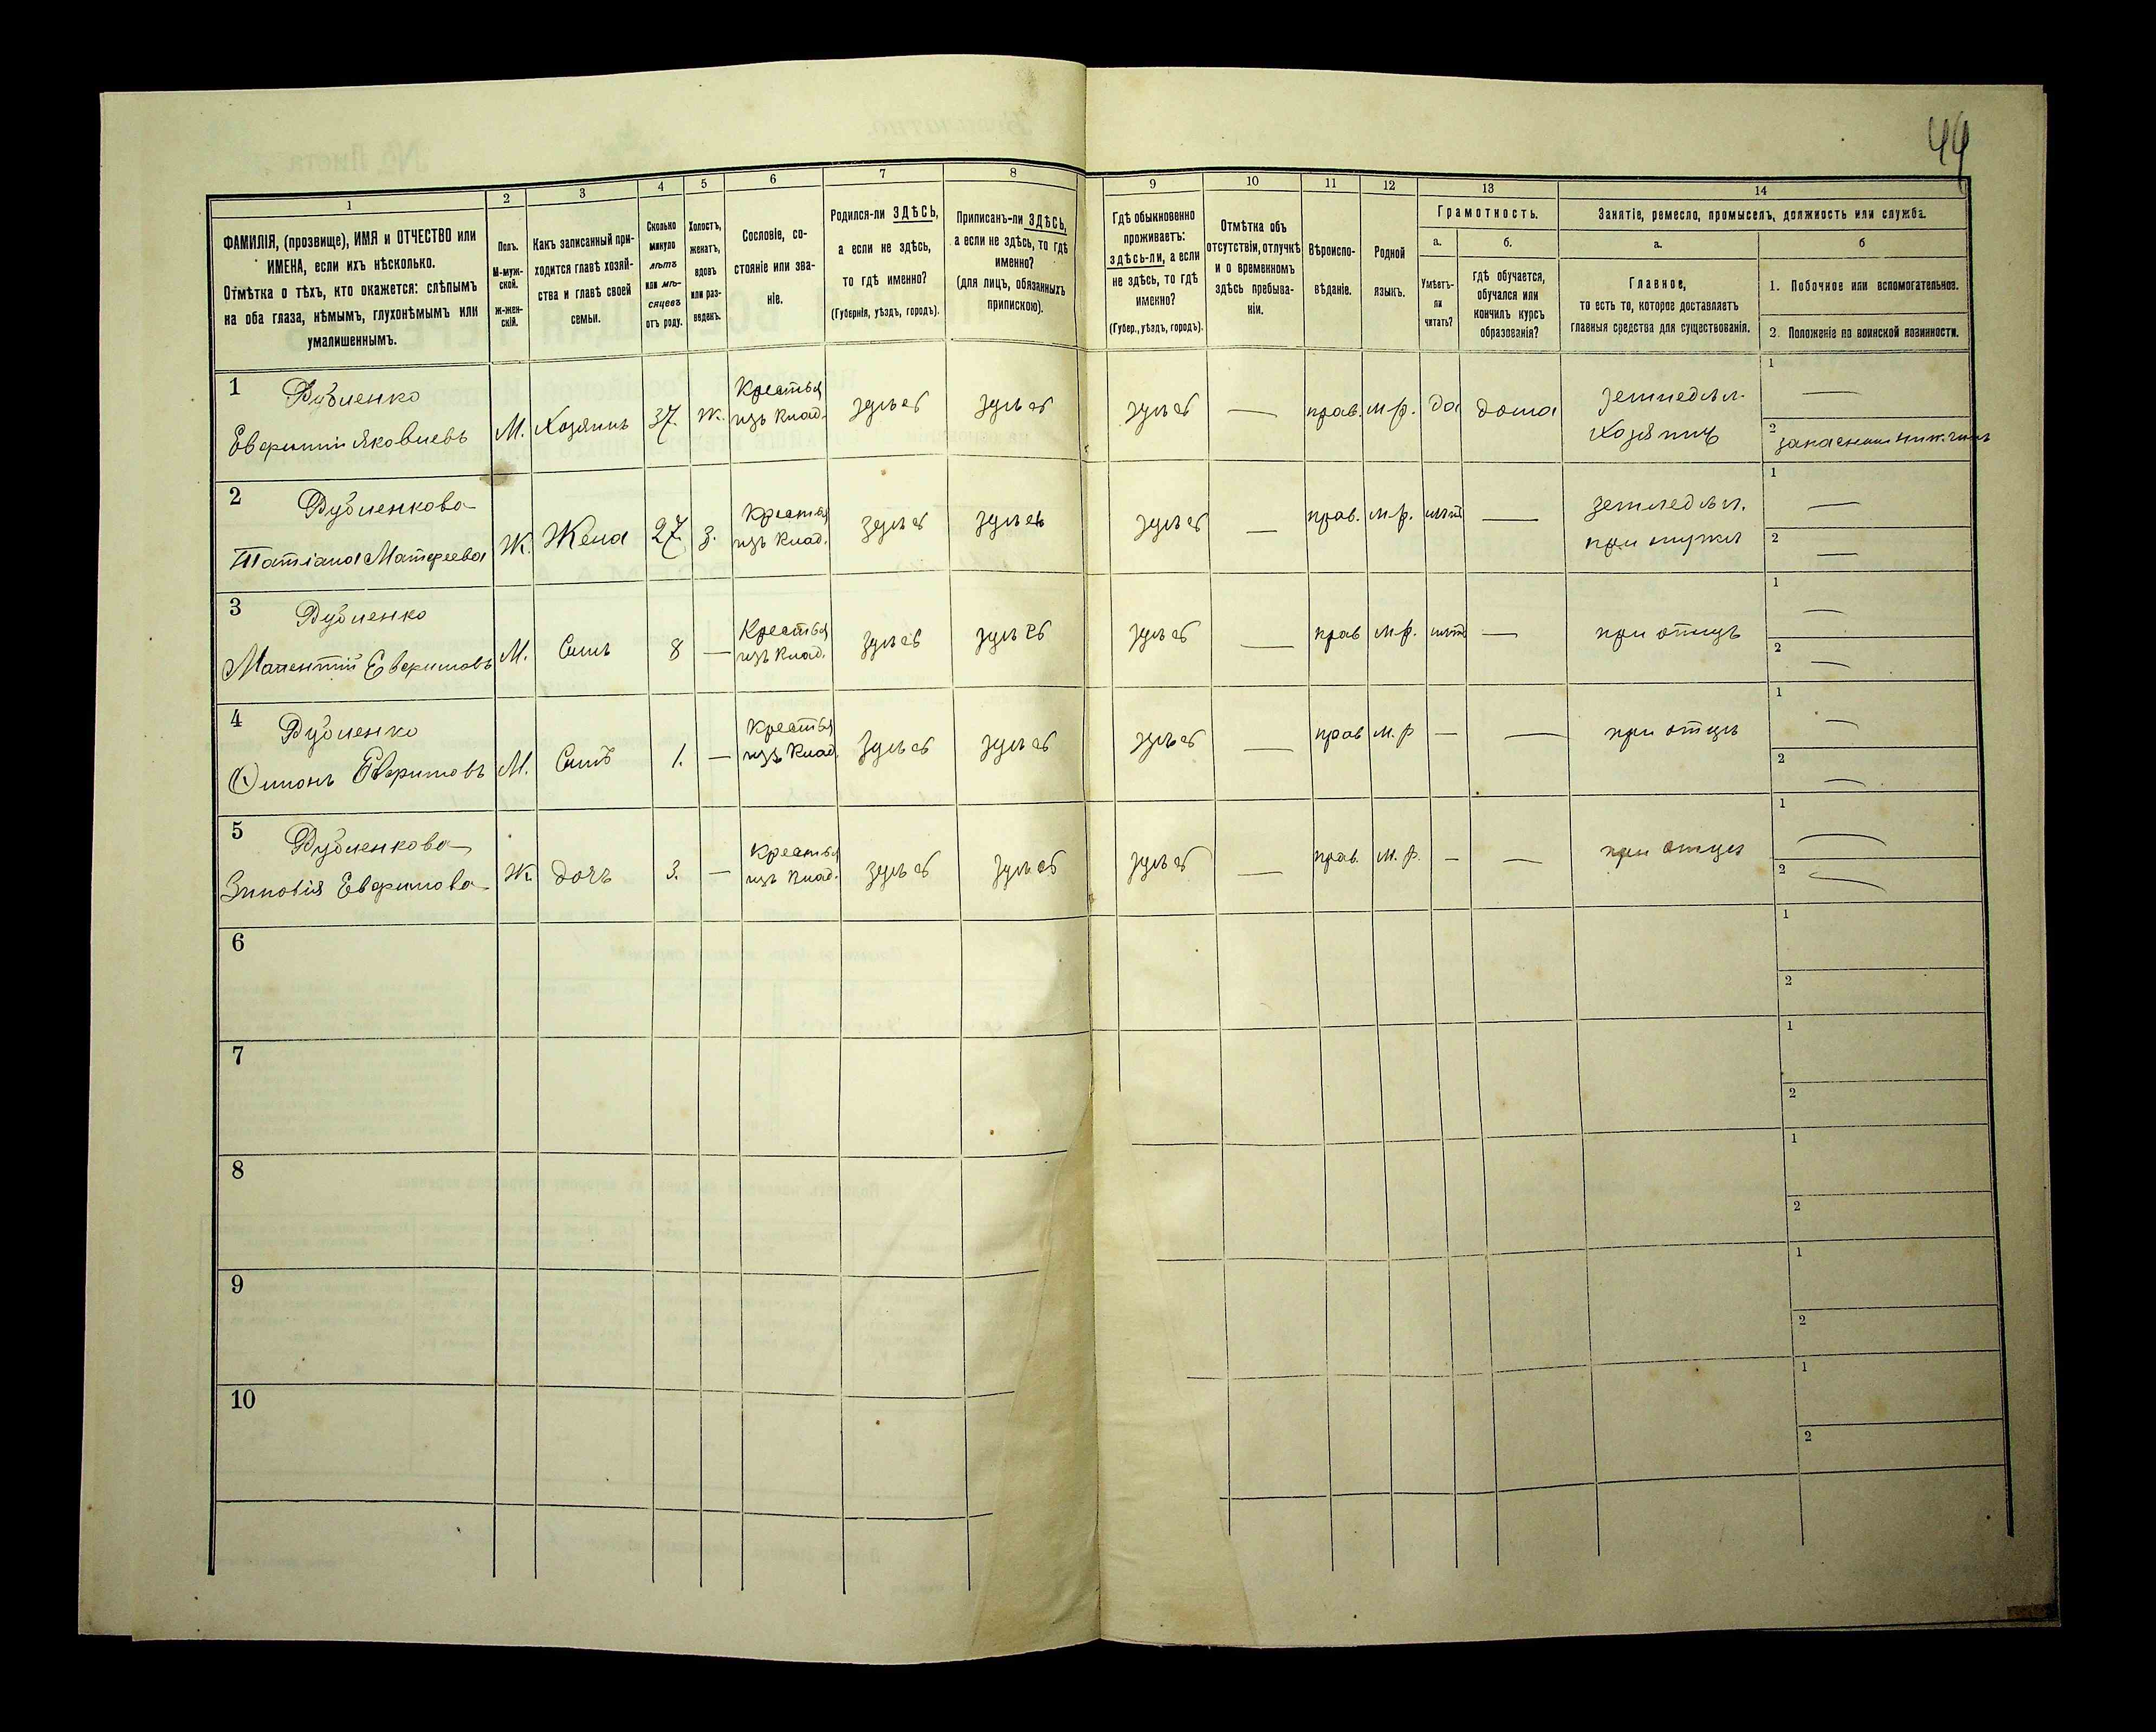 44
1 2 3 4 5 6 7 8 9 10 11 12 13 14
ФАМИЛІЯ, (прозвище), ИМЯ и ОТЧЕСТВО или
ИМЕНА, если ихъ нѣсколько.
Отмѣтка о тѣхъ, кто окажется: слѣпымъ
на оба глаза, нѣмымъ, глухонѣмымъ или
умалишеннымъ.
Полъ.
М-муж-
ской.
ж-жен-
скій.
Какъ записанный при-
ходится главѣ хозяй-
ства и главѣ своей
семьи.
Сколько
минуло
лѣтъ
или мѣ-
сяцевъ
отъ роду.
Холостъ,
женатъ,
вдовъ
или раз-
веденъ.
Сословіе, со-
стояніе или зва-
ніе.
Родился-ли ЗДѢСЬ,
а если не здѣсь,
то гдѣ именно?
(Губернія, уѣздъ, городъ).
Приписанъ-ли ЗДѢСЬ,
а если не здѣсь, то гдѣ
именно?
(для лицъ, обязанныхъ
припискою).
Гдѣ обыкновенно
проживаетъ:
здѣсь-ли, а если
не здѣсь, то гдѣ
именно?
(Губер., уѣздъ, городъ).
Отмѣтка объ
отсутствіи, отлучкѣ
и о временномъ
здѣсь пребыва-
ніи.
Вѣроиспо-
вѣданіе.
Родной
языкъ.
Грамотность.
а.
Умѣетъ-
ли
читать?
б.
гдѣ обучается,
обучался или
кончилъ курсъ
образованія?
Занятіе, ремесло, промыселъ, должность или служба.
а.
Главное,
то есть то, которое доставляетъ
главныя средства для существованія.
б
1. Побочное или вспомогательное.
2. Положеніе по воинской повинности.
1 Дубленко
Евфимій Яковлевъ
М. Хозяинъ 37. ж.
Крестья
изъ Влад.
здѣсь здѣсь здѣсь — прав. м.р. да дома
земледѣл.
хозяинъ
1 —
2 запасный ниж. чинъ
2 Дубленкова
Татіана Матфеева
Ж. Жена 27. з.
Крестья
изъ Влад.
здѣсь здѣсь здѣсь — прав. м.р. нѣтъ —
земледѣл.
при мужѣ
1 —
2 —
3 Дубленко
Мелентій Евфимовъ
М. Сынъ 8 —
Крестья
изъ Влад.
здѣсь здѣсь здѣсь — прав м.р. нѣтъ —
при отцѣ
1 —
2 —
4 Дубленко
Филонъ Евфимовъ
М. Сынъ 1. —
Крестья
изъ Влад.
здѣсь здѣсь здѣсь — прав м.р — —
при отцѣ
1 —
2 —
5 Дубленкова
Зиновія Евфимова
Ж. дочь 3. —
Крестья
изъ Влад.
здѣсь здѣсь здѣсь — прав. м.р. — —
при отцѣ
1 —
2 —
6 1
2
7 1
2
8 1
2
9 1
2
10 1
2